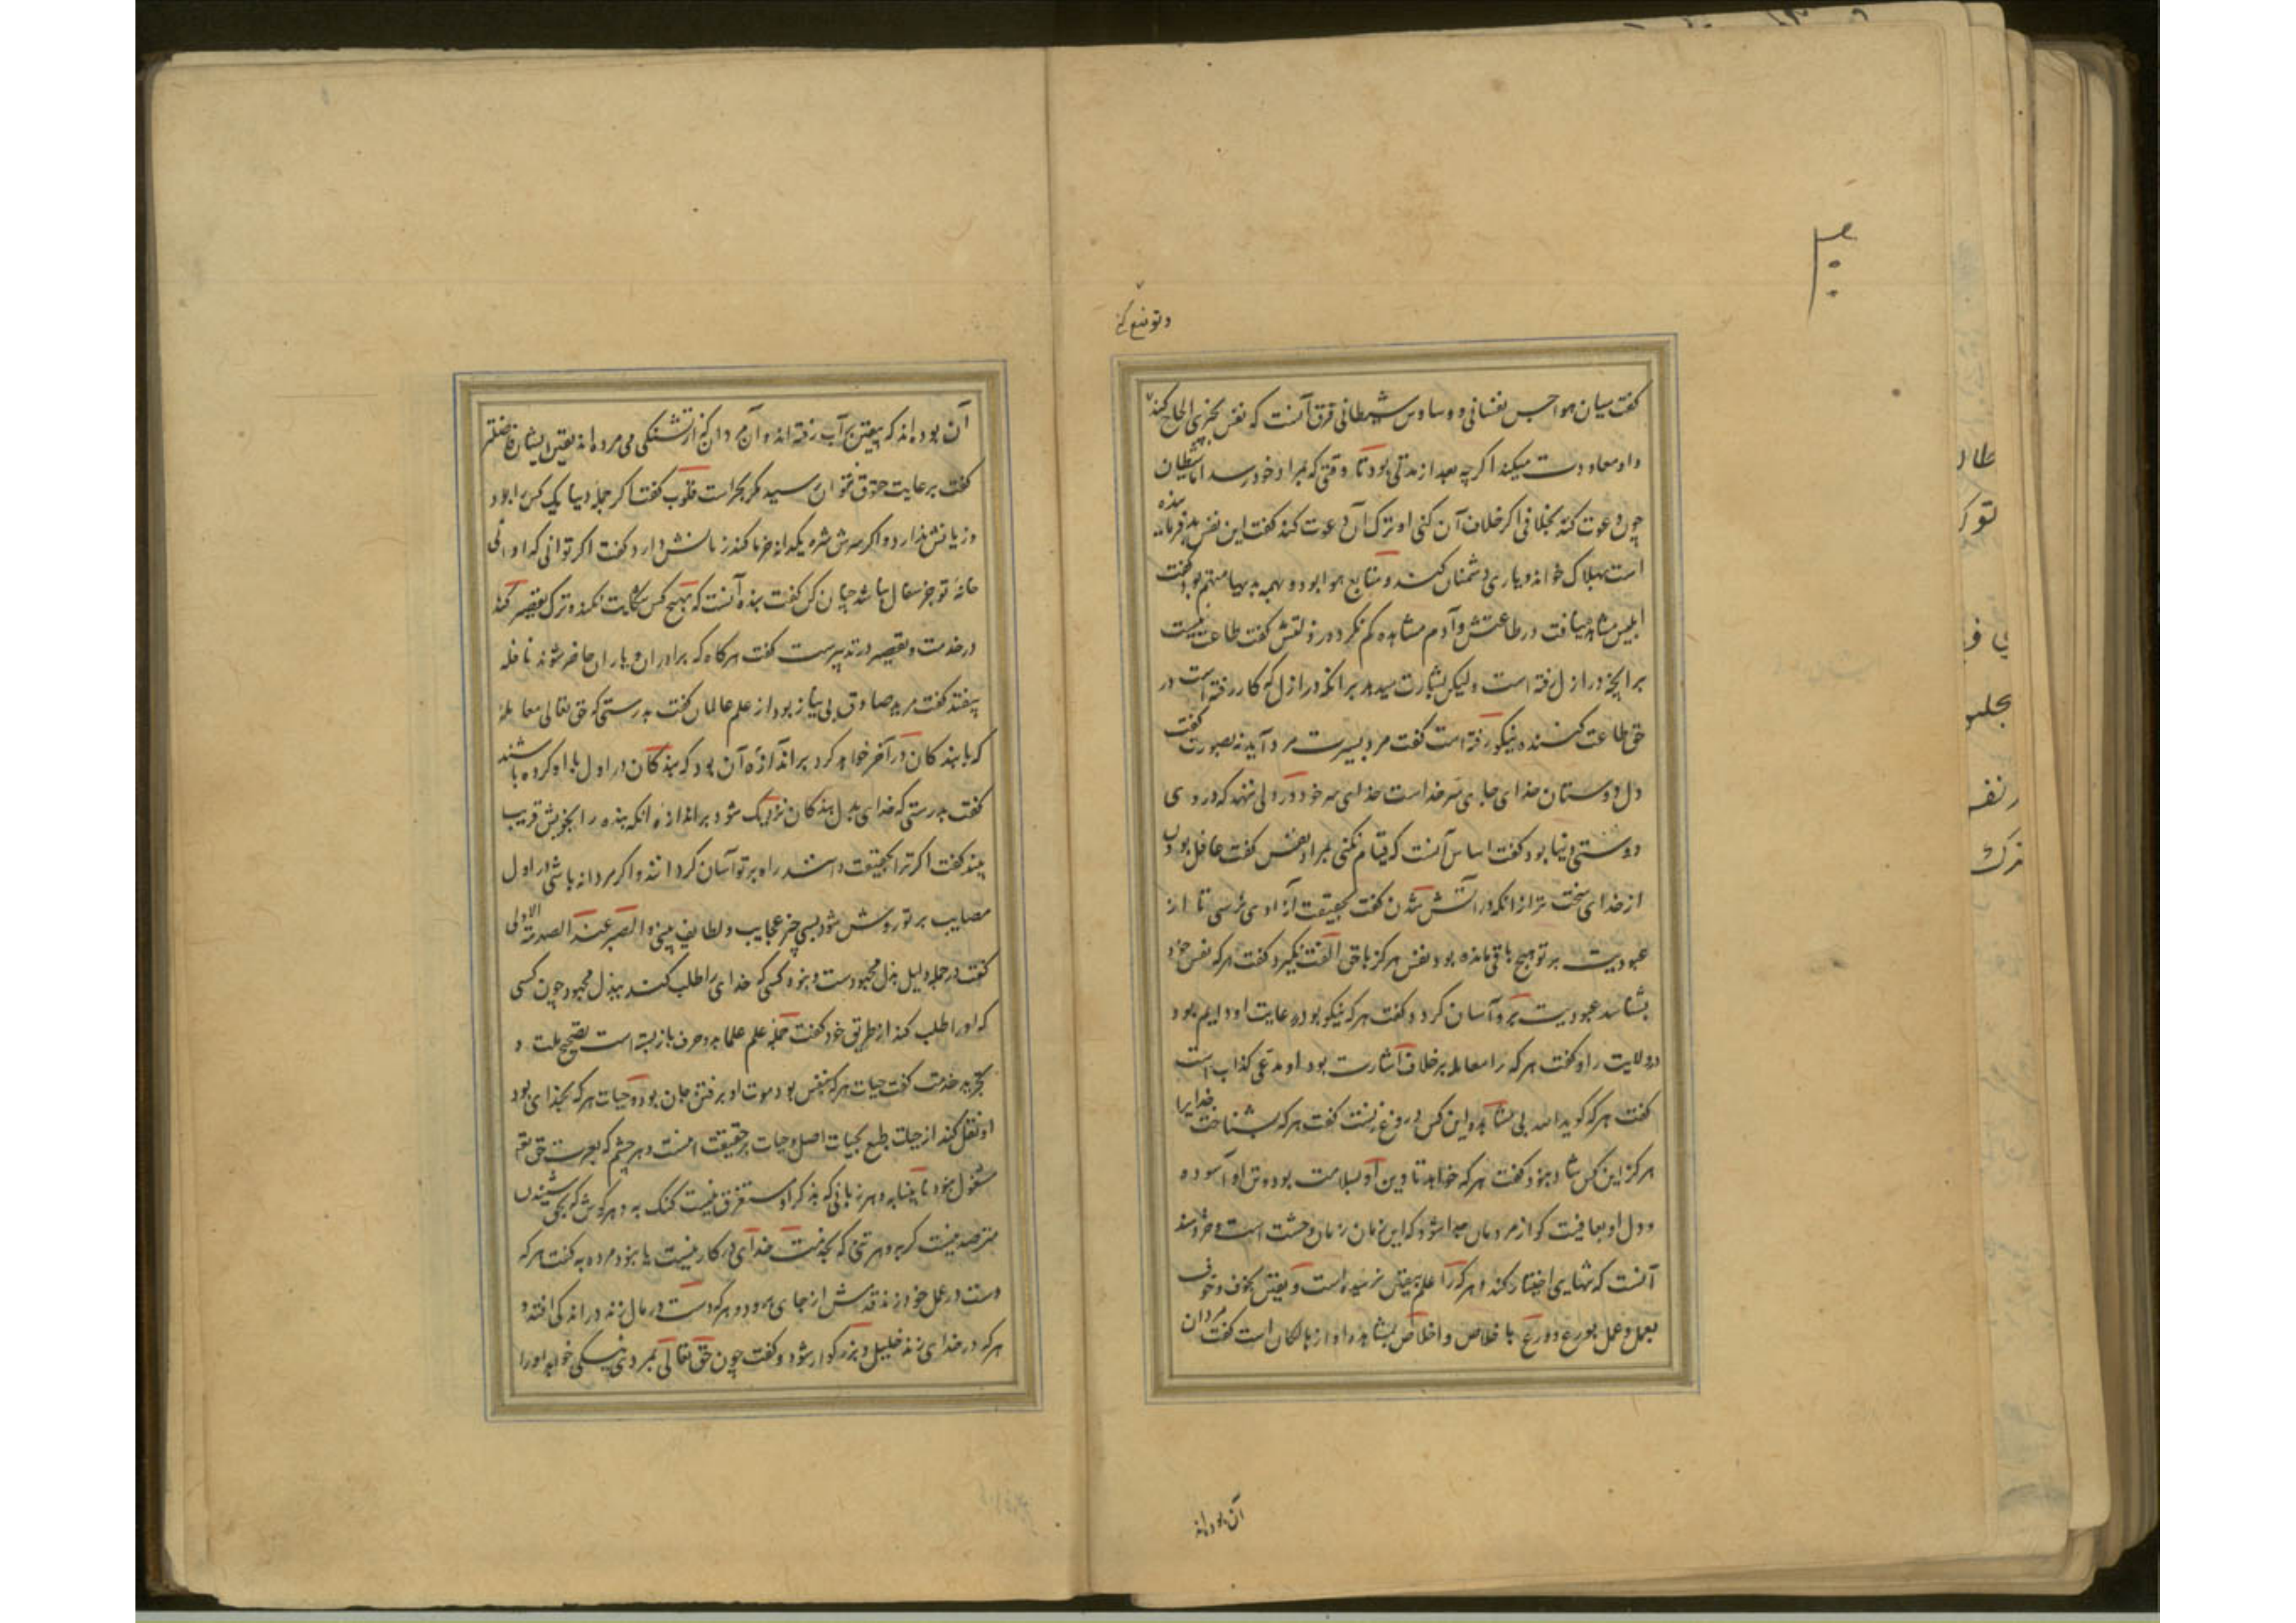 وتو منع کنی
گفت میان هواجس نفسانی و وساوس شیطانی فرق آنست که نفس بچیزی الحاح کند
و او معاودت میکند اگرچه بعد از مدتی بود تا وقتی که بمراد خود رسد اما شیطان
چون دعوت کند بخلافی اگر خلاف آن کنی او ترک آن دعوت کند گفت این نفس بد فرماینده
است بهلاک خواند و یاری دشمنان کند و متابع هوا بود و بهمه بدیها متهم بود گفت
ابلیس مشاهده نیافت در طاعتش و آدم مشاهده کم نکرد در زلتش گفت طاعت نیست
بر آنچه در ازل رفته است ولیکن بشارت میدهد بر آنکه در ازل که کار رفته است در
حق طاعت کننده نیکو رفته است گفت مرد بسیرت مرد آید نه بصورت گفت
دل دوستان خدای جای سر خداست خدای سر خود در دلی ننهد که در وی
دوستی دنیا بود گفت اساس آنست که قیام نکنی بمراد نفس گفت غافل بودن
از خدای سخت تر از آنکه در آتش شدن گفت بحقیقت آزادی نرسی تا از
عبودیت بر تو هیچ باقی مانده بود نفس هرگز با حق الفت نگیرد گفت هر که نفس خود
بشناسد عبودیت برو آسان گردد و گفت هر که نیکو بود رعایت او دایم بود
ولایت را و گفت هر که را معامله برخلاف اشارت بود او مدعی کذاب است
گفت هر که گوید الله بی مشاهده این کس دروغ زنست گفت هر که بشناخت خدایرا
هرگز این کس شاد نبود گفت هر که خواهد تا دین او بسلامت بود و تن او آسوده
و دل او بعافیت گو از مردمان جدا شو که این زمان زمان وحشت است و خردمند
آنست که تنهایی اختیار کند و هر که را علم بیقین نرسیده است و یقین بخوف و خوف
بعمل و عمل بورع و ورع باخلاص و اخلاص بمشاهده او از هالکان است گفت مردان
آن بوده اند
آن بوده اند که بیقین بر آب رفته اند و آن مردان که از تشنگی می مرده اند یقین ایشان فاضلتر
گفت برعایت حقوق نتوان رسید مگر بحراست قلوب گفت اگر جمله دنیا یک کس را بود
و زیانش ندارد و اگر سرش شره یکدانه خرما کند زیانش دارد گفت اگر توانی که اوانی
خانه تو جز سفال نباشد چنان کن گفت بنده آنست که بهیچ کس شکایت نکند و ترک تقصیر کند
در خدمت و تقصیر در تدبیر است گفت هرگاه که برادران و یاران حاضر شوند نافله
بیفتد گفت مرید صادق بی نیاز بود از علم عالمان گفت بدرستی که حق تعالی معامله
که با بندگان در آخر خواهد کرد بر اندازه آن بود که بندگان در اول با او کرده باشند
گفت بدرستی که خدای بدل بندگان نزدیک شود بر اندازه آنکه بنده را بخویش قریب
بیند گفت اگر ترا بحقیقت دانند راه بر تو آسان گردانند و اگر مردانه باشی در اول
مصایب بر تو روشن شود بسی چیز عجایب و لطایف بینی و الصبر عند الصدمة الاولی
گفت در جمله دلیل بذل مجهودست و نبود کسی که خدای را طلب کند ببذل مجهود چون کسی
که او را طلب کند از طریق خود گفت جمله علم علما بدو حرف باز بسته است تصحیح ملت و
تجرید خدمت گفت حیات هر که بنفس بود موت او برفتن جان بود و حیات هر که بخدای بود
او نقل کند از حیات طبع بحیات اصل و حیات بر حقیقت اینست و هر چشم که بعبرت حق تع
مشغول نبود نابینا به و هر زبانی که بذکر او مستغرق نیست گنگ به و هر گوش که بحق شنیدن
مترصد نیست کر به و هر تنی که بخدمت خدای در کار نیست یا بنود مرده به گفت هر که
دست در عمل خود زند قدمش از جای برود و هر که دست در مال زند در اندکی افتد و
هر که در خدای زند جلیل و بزرگوار شود و گفت چون حق تعالی بمریدی نیکی خواهد او را